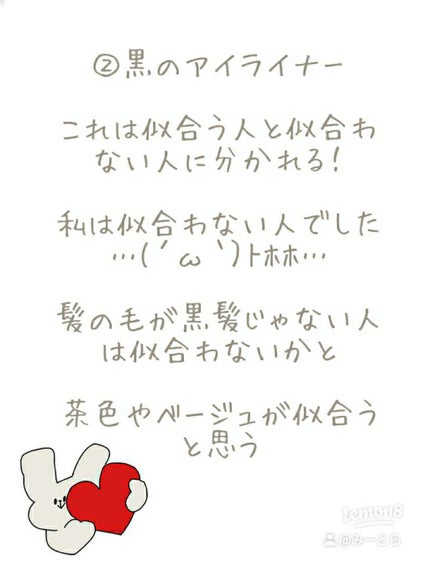 ②黒のアイライナー
これは似合う人と似合わ
ない人に分かれる！
私は似合わない人でした
…( ´ ω ｀)ﾄﾎﾎ…
髪の毛が黒髪じゃない人
は似合わないかと
茶色やベージュが似合う
と思う
lemon8
@みーとら